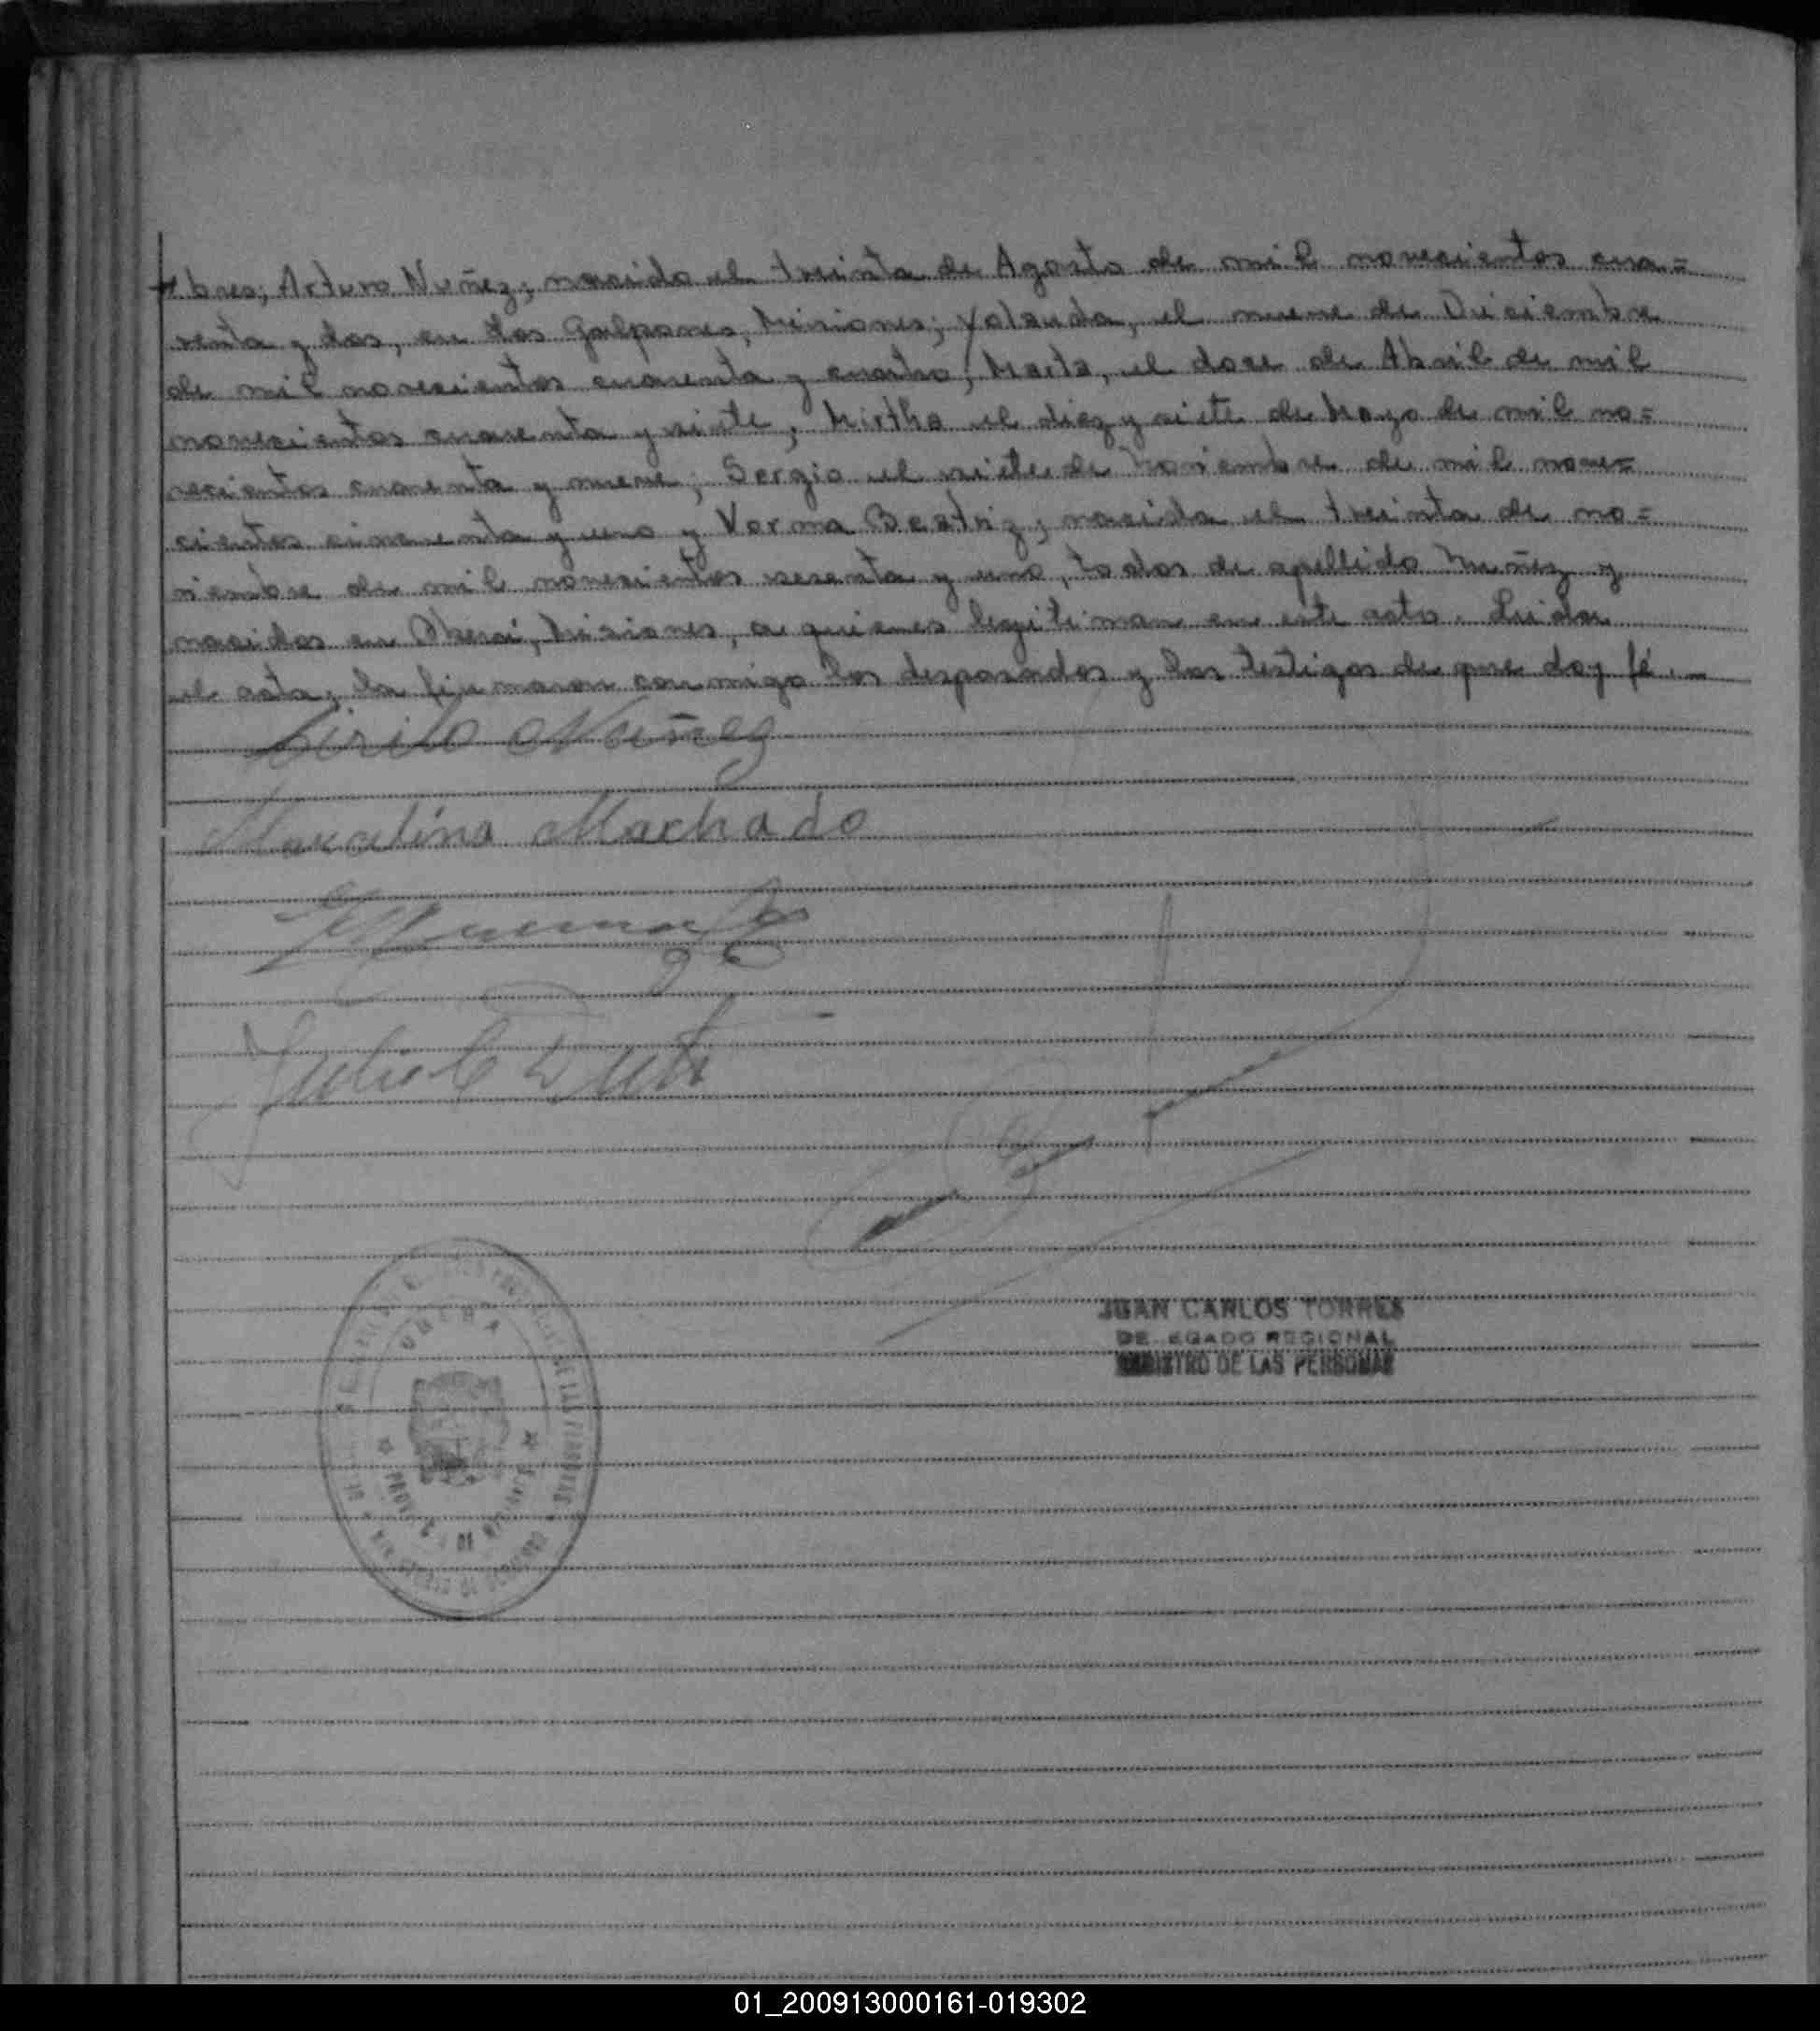 bres; Arturo Nuñez; nacido el treinta de Agosto de mil novecientos cua=
renta y dos, en los Galpones, Misiones; Yolanda, el nueve de Diciembre
de mil novecientos cuarenta y cuatro; Marta, el doce de Abril de mil
novecientos cuarenta y siete; Mirtha el diez y siete de Mayo de mil no=
vecientos cuarenta y nueve; Sergio el siete de Noviembre de mil nove=
cientos cincuenta y uno y Norma Beatriz; nacida el treinta de no=
viembre de mil novecientos sesenta y uno, todos de apellido Nuñez y
nacidos en Oberá, Misiones, a quienes legitiman en este acto. Leida
el acta, la firmaron conmigo los desposados y los testigos de que doy fé.
Cirilo Nuñez
Marcelina Machado
OBERA
DE LAS PERSONAS
DE MISIONES
JUAN CARLOS TORRES
DELEGADO REGIONAL
REGISTRO DE LAS PERSONAS
01_200913000161-019302